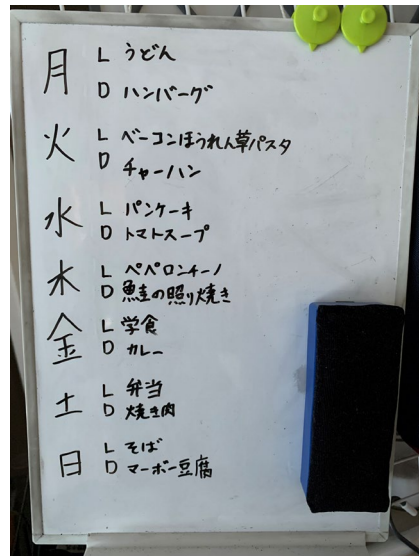 月 L うどん
D ハンバーグ
火 L ベーコンほうれん草パスタ
D チャーハン
水 L パンケーキ
D トマトスープ
木 L ペペロンチーノ
D 鮭の照り焼き
金 L 学食
D カレー
土 L 弁当
D 焼き肉
日 L そば
D マーボー豆腐